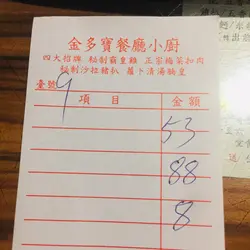 金多寶餐廳小廚
四大招牌 秘制霸皇雞 正宗梅菜扣肉
秘制沙拉豬扒 蘿卜清湯腩皇
臺號 9
項目 金額
53
88
8